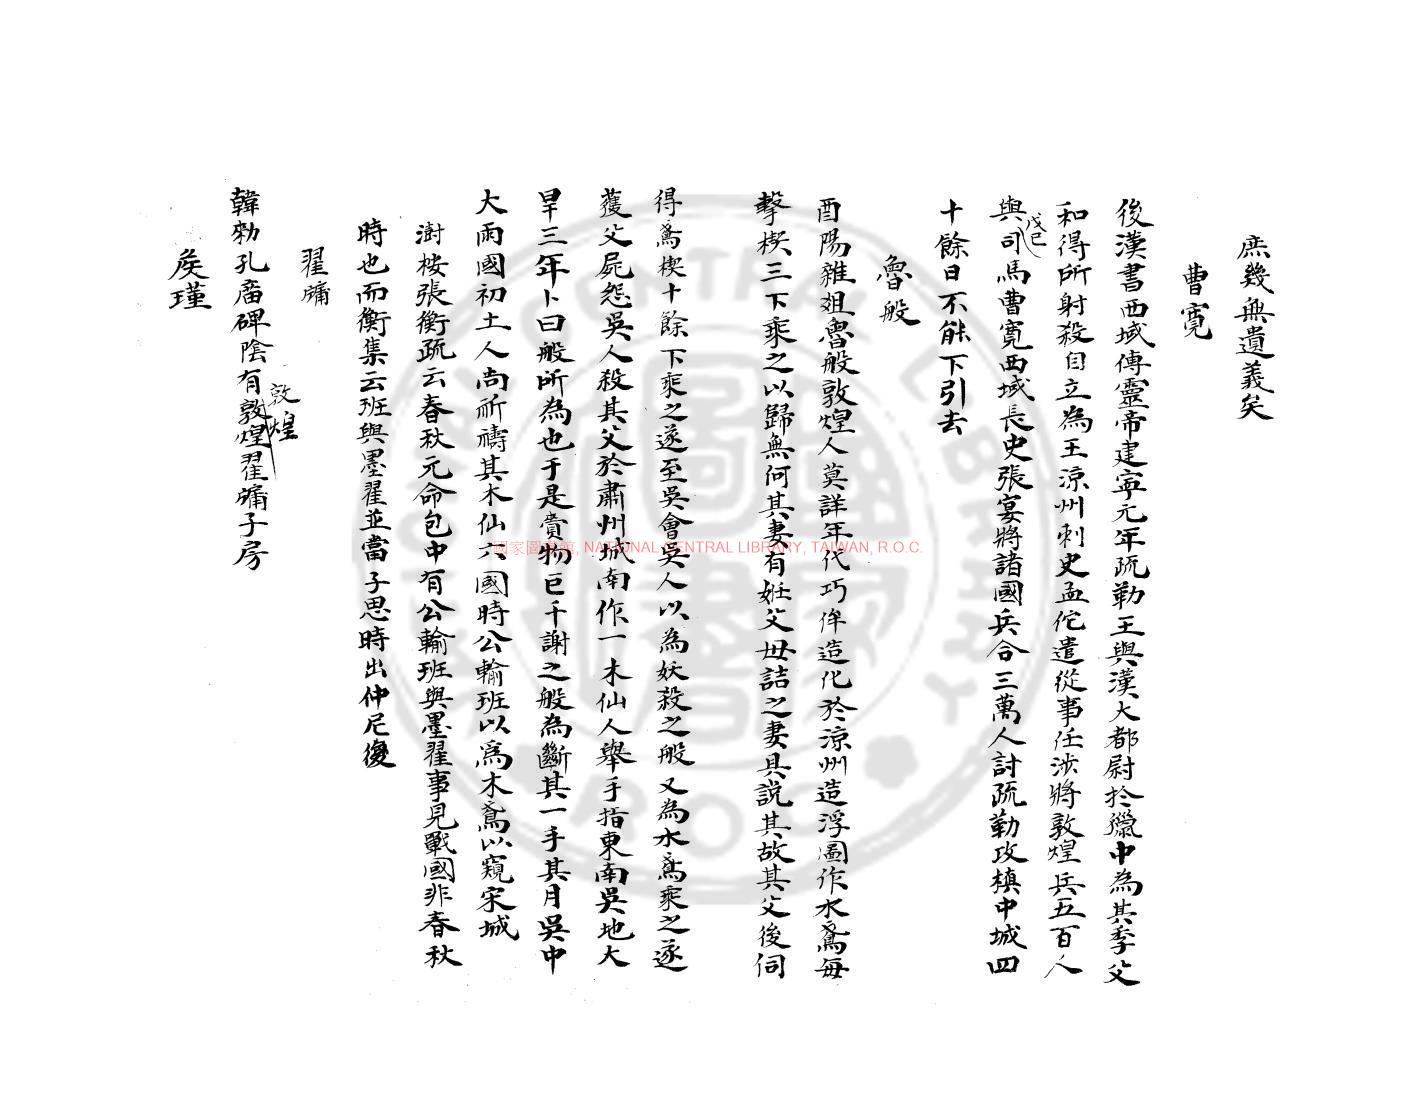 庶幾無遺義矣
曹寬
後漢書西域傳靈帝建寧元年疏勒王與漢大都尉於獵中為其季父
和得所射殺自立為王涼州刺史孟佗遣從事任涉將敦煌兵五百人
與戊己司馬曹寬西域長史張宴將諸國兵合三萬人討疏勒攻楨中城四
十餘日不能下引去
魯般
酉陽雜姐魯般敦煌人莫詳年代巧侔造化於涼州造浮圖作水鳶每
擊楔三下乘之以歸無何其妻有妊父母詰之妻具說其故其父後伺
得鳶楔十餘下乘之遂至吳會吳人以為妖殺之般又為水鳶乘之遂
獲父屍怨吳人殺其父於肅州城南作一木仙人舉手指東南吳地大
旱三年卜曰般所為也于是賷物巨千謝之般為斷其一手其月吳中
大雨國初土人尚祈禱其木仙六國時公輸班以為木鳶以窺宋城
澍桉張衡疏云春秋元命包中有公輸班與墨翟事見戰國非春秋
時也而衡集云班與墨翟並當子思時出仲尼後
翟牗
韓勑孔廟碑陰有敦煌敦煌翟牗子房
矦瑾
國家圖書館, NATIONAL CENTRAL LIBRARY, TAIWAN, R.O.C.
NATIONAL CENTRAL LIBRARY
R.O.C.